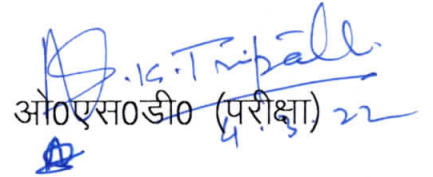 A.K. Tripathi
ओ०एस०डी० (परीक्षा)
4.3.22